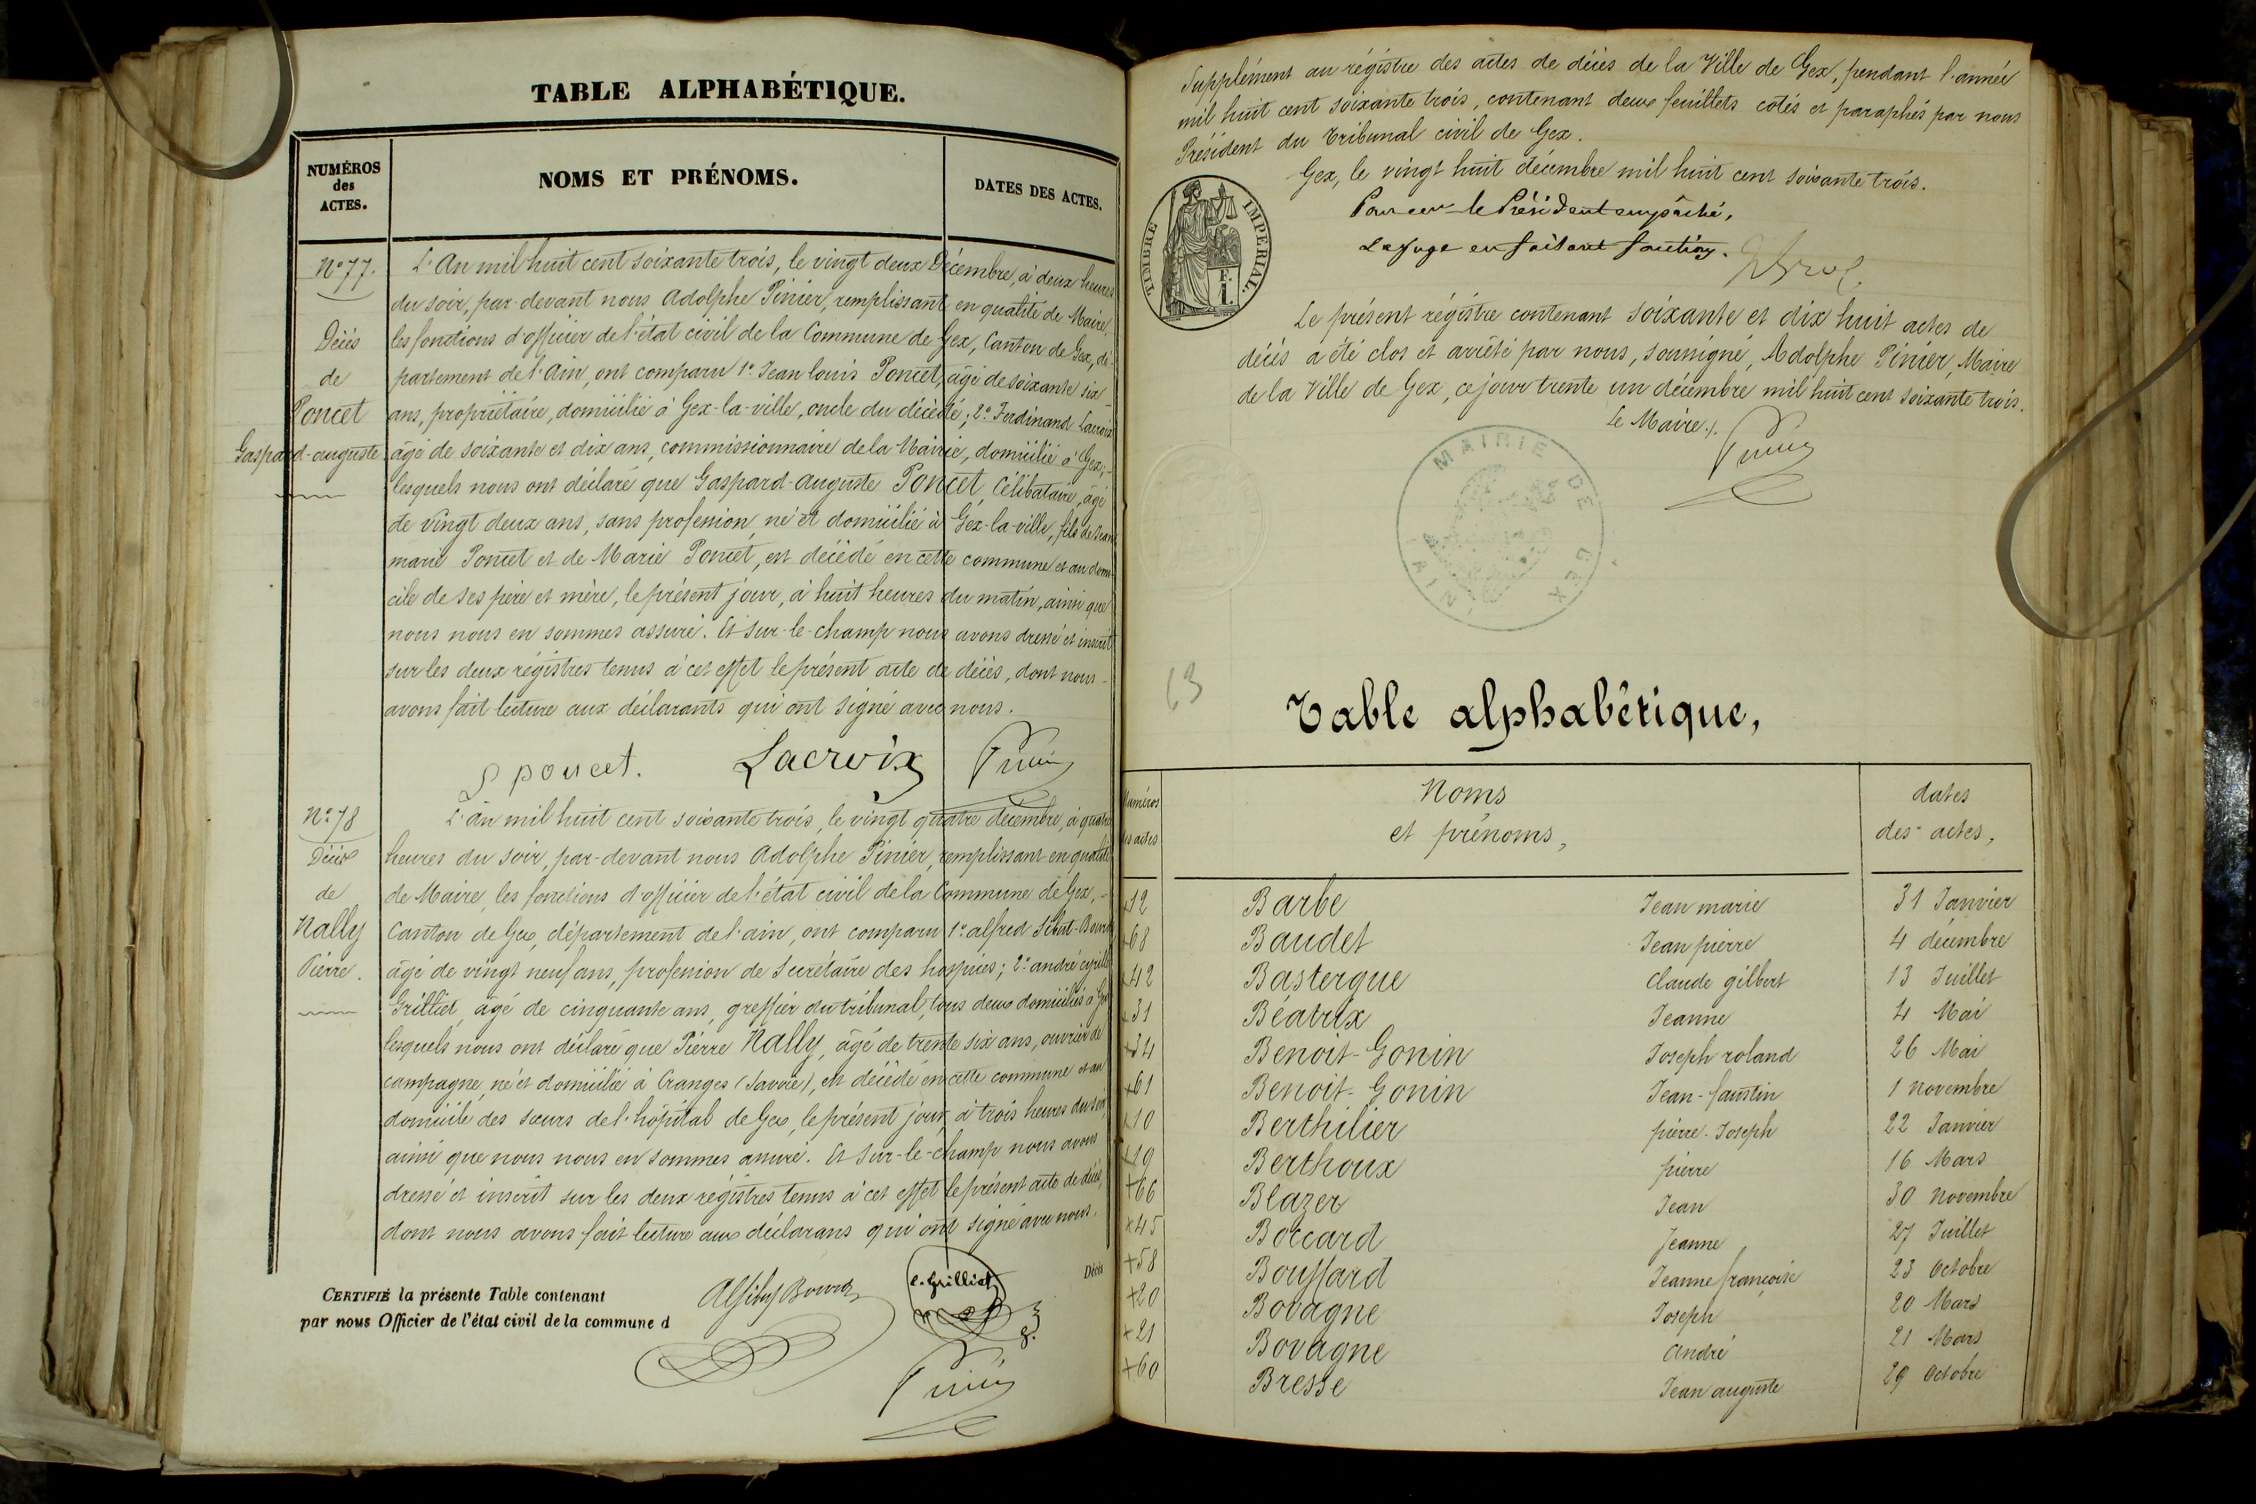 TABLE ALPHABÉTIQUE.
NUMÉROS
des
ACTES.
NOMS ET PRÉNOMS.
DATES DES ACTES.
N° 77.
Décès
de
Poncet
Gaspard-auguste
L'An mil huit cent soixante trois, le vingt deux Décembre, à deux heures
du soir, par-devant nous Adolphe Pinier, remplissant en qualité de Maire
les fonctions d'officier de l'état civil de la Commune de Gex, Canton de Gex, dé-
partement de l'Ain, ont comparu 1° Jean louis Poncet, âgé de soixante six
ans, propriétaire, domicilié à Gex-la-ville, oncle du décédé; 2° Ferdinand Lacroix
âgé de soixante et dix ans, commissionnaire de la Mairie, domicilié à Gex;-
lesquels nous ont déclaré que Gaspard-auguste Poncet, Célibataire, âgé
de vingt deux ans, sans profession, né et domicilié à Gex-la-ville, fils de Jean
marie Poncet et de Marie Poncet, est décédé en cette commune et au domi-
cile de ses père et mère, le présent jour, à huit heures du matin, ainsi que
nous nous en sommes assuré. Et sur-le-champ nous avons dressé et inscrit
sur les deux régistres tenus à cet effet le présent acte de décès, dont nous-
avons fait lecture aux déclarants qui ont signé avec nous.
poncet. Lacroix Pinier
N° 78
Décès
de
Nally
Pierre.
L'an mil huit cent soixante trois, le vingt quatre décembre, à quatre
heures du soir, par-devant nous Adolphe Pinier, remplissant en qualité
de Maire, les fonctions d'officier de l'état civil de la Commune de Gex,-
Canton de Gex, département de l'ain, ont comparu 1° alfred
âgé de vingt neuf ans, profession de Secrétaire des hospices; 2° andré cyrille
Grilliet, âgé de cinquante ans, greffier du tribunal, tous deux domiciliés à Gex
lesquels nous ont déclaré que Pierre Nally, âgé de trente six ans, ouvrier de
campagne, né et domicilié à Cranges (Savoie), est décédé en cette commune et au
domicile des sœurs de l'hôpital de Gex, le présent jour, à trois heures du soir,
ainsi que nous nous en sommes assuré. Et sur-le-champ nous avons
dressé et inscrit sur les deux régistres tenus à cet effet le présent acte de décès,
dont nous avons fait lecture aux déclarans qui ont signé avec nous.
Décès
CERTIFIÉ la présente Table contenant
par nous Officier de l'état civil de la commune d
Grilliet
Pinier
Supplément au régistre des actes de décès de la Ville de Gex, pendant l'année
mil huit cent soixante trois, contenant deux feuillets cotés et paraphés par nous
Président du Tribunal civil de Gex.
Gex, le vingt huit décembre mil huit cent soixante trois.
Pour le Président empêché,
Le Juge en faisant fonction.
TIMBRE IMPÉRIAL.
Le présent régistre contenant soixante et dix huit actes de
décès a été clos et arrêté par nous, soussigné, Adolphe Pinier, Maire
de la Ville de Gex, ce jour trente un décembre mil huit cent soixante trois.
Le Maire.
Pinier
MAIRIE DE GEX (AIN)
63
Table alphabétique,
Numéros
des actes
Noms
et prénoms,
dates
des actes,
12 Barbe Jean marie 31 Janvier
+68 Baudet Jean pierre 4 décembre
+42 Bastergue Claude gilbert 13 Juillet
+31 Béatrix Jeanne 4 Mai
+34 Benoit-Gonin Joseph roland 26 Mai
+61 Benoit-Gonin Jean-faustin 1 novembre
+10 Berthilier pierre-Joseph 22 Janvier
+19 Berthoux pierre 16 Mars
+66 Blazer Jean 30 novembre
+45 Boccard Jeanne 27 Juillet
+58 Bouffard Jeanne françoise 23 Octobre
+20 Bovagne Joseph 20 Mars
+21 Bovagne André 21 Mars
+60 Bresse Jean auguste 29 Octobre